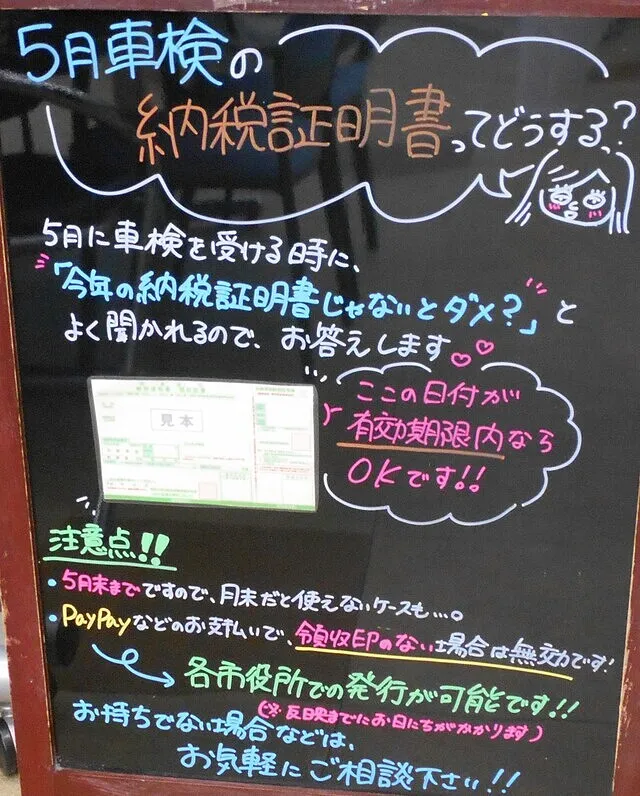 5月車検の
納税証明書ってどうする?
5月に車検を受ける時に、
「今年の納税証明書じゃないとダメ?」と
よく聞かれるので、お答えします
見本
ここの日付が
有効期限内なら
OKです!!
注意点!!
・5月末までですので、月末だと使えないケースも…。
・PayPayなどのお支払いで、領収印のない場合は無効です!
各市役所での発行が可能です!!
(※反映までにお日にちがかかります)
お持ちでない場合などは、
お気軽にご相談下さい!!